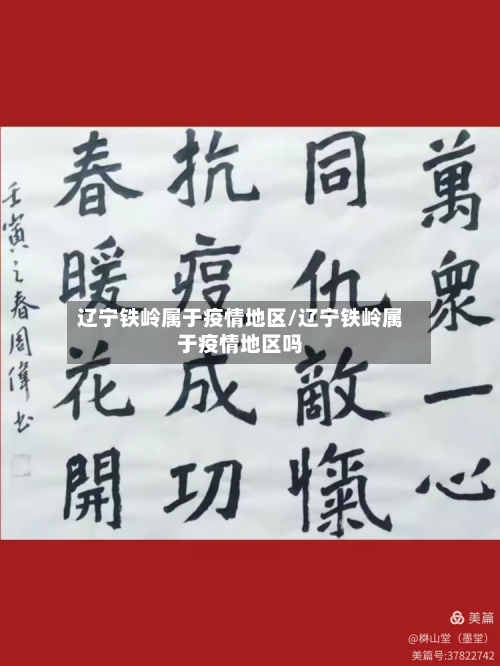 萬眾一心
同仇敵愾
抗疫成功
春暖花開
壬寅之春周偉书
辽宁铁岭属于疫情地区/辽宁铁岭属
于疫情地区吗
美篇
@楙山堂（墨堂）
美篇号:37822742